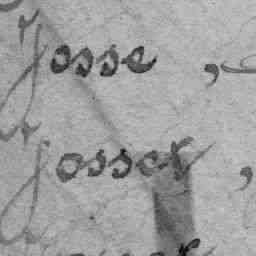 Josse,
Josset,